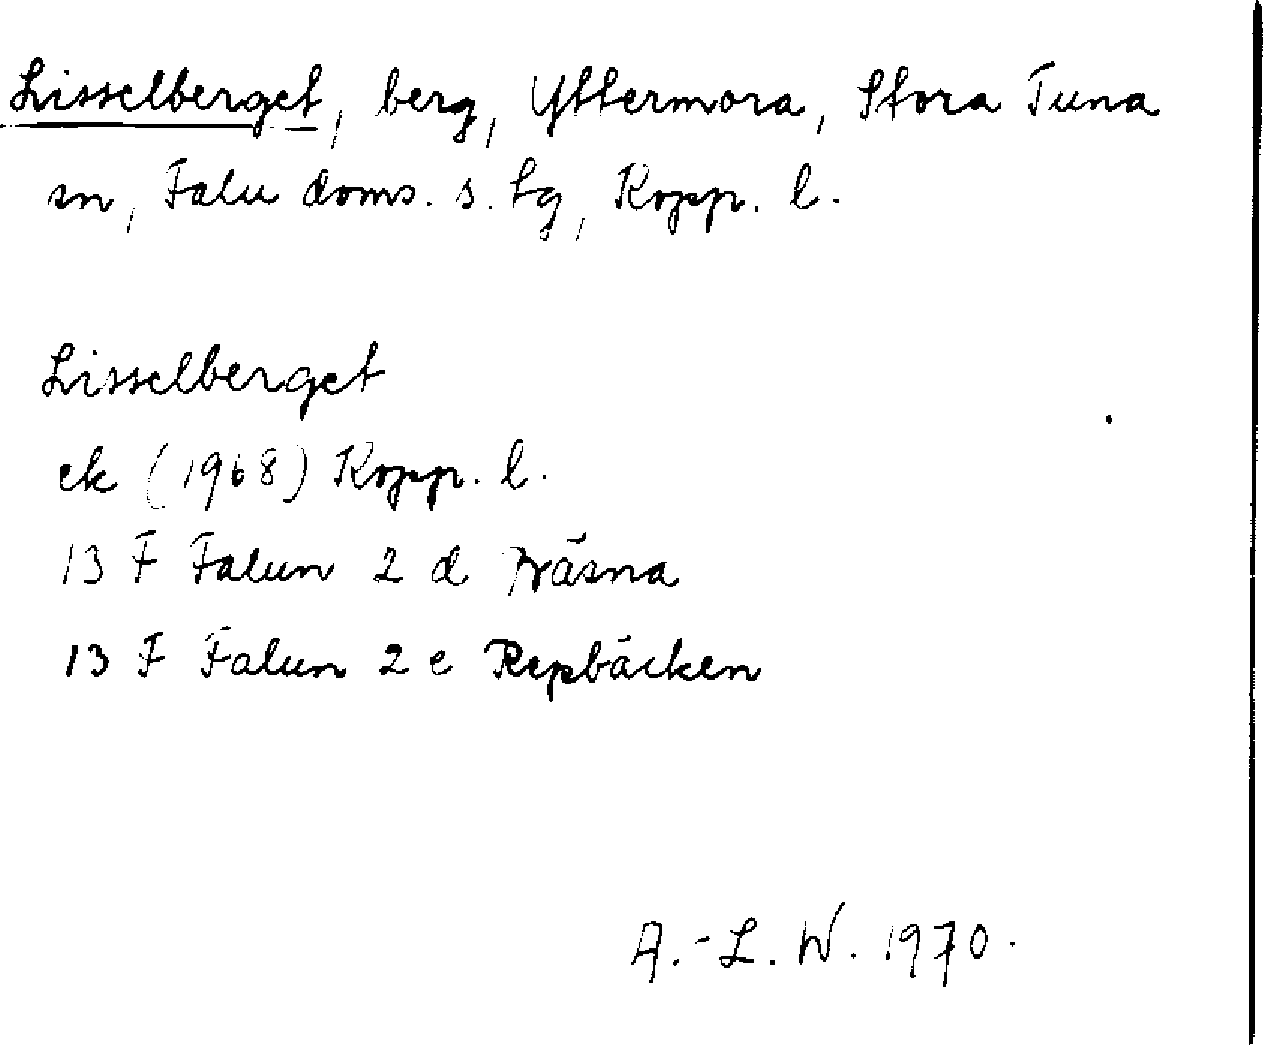 Lisselberget, berg, Yttermora, Stora Tuna
sn, Falu doms. s. tg, Kopp. l.
Lisselberget
ek (1968) Kopp. l.
13 F Falun 2 d Nräsna
13 F Falun 2 e Repbäcken
A.-L. W. 1970.